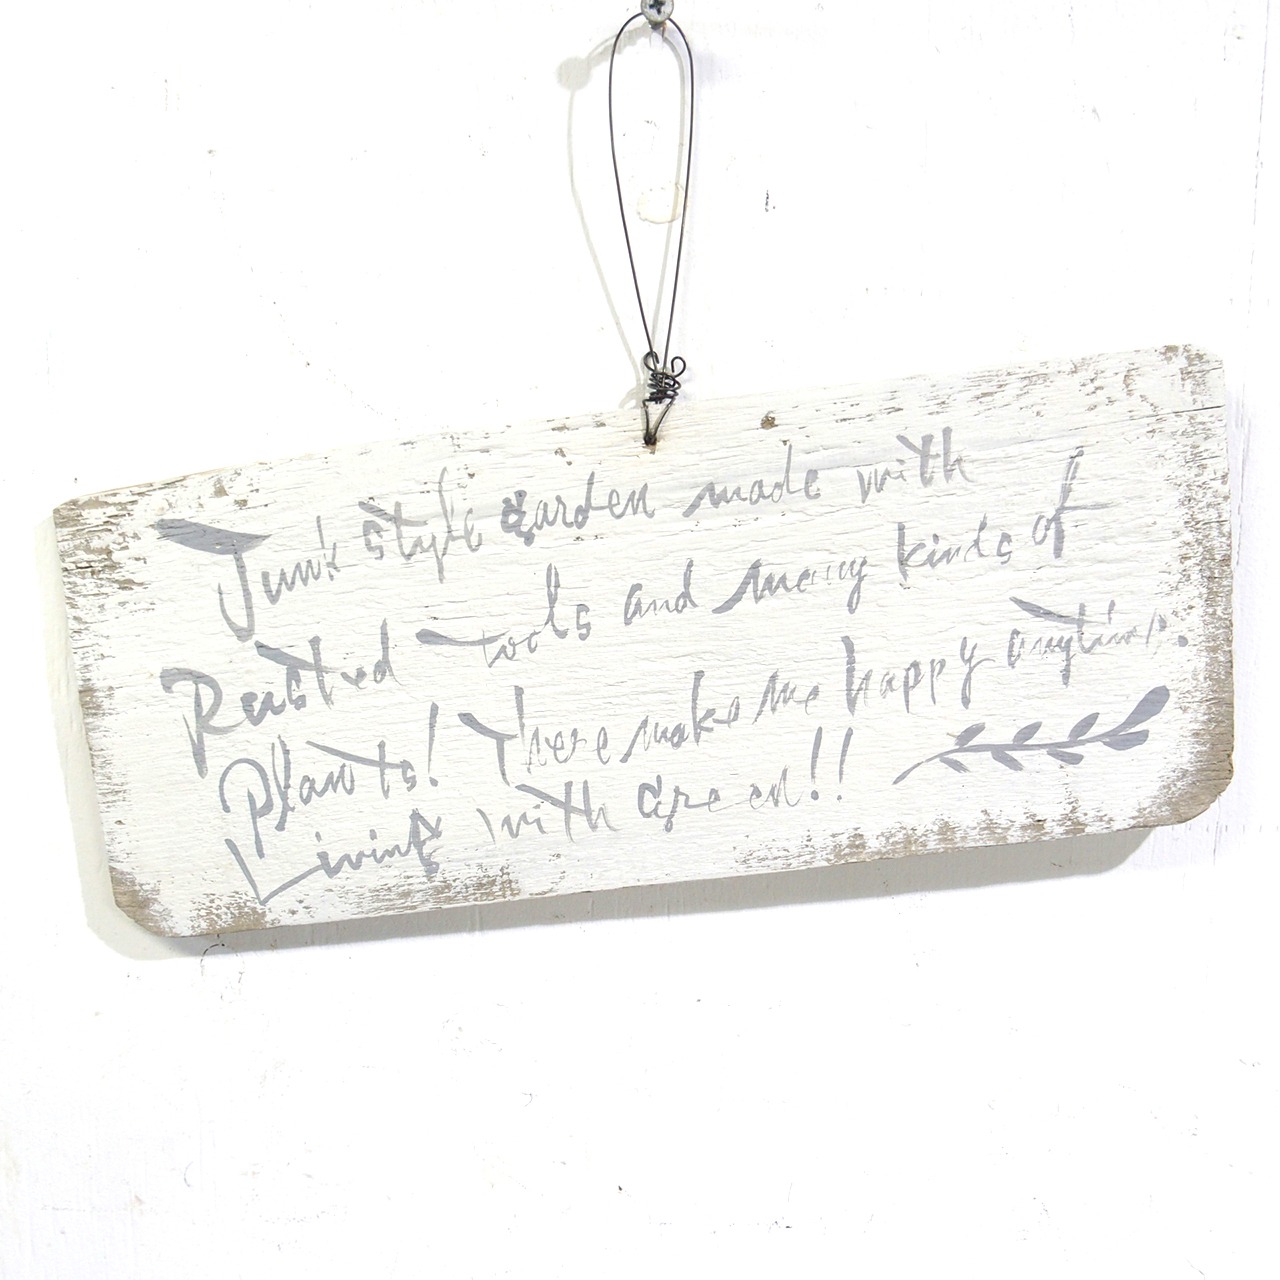 Junk style garden made with
Rusted tools and many kinds of
Plants! There make me happy anytime.
Living with Green!!